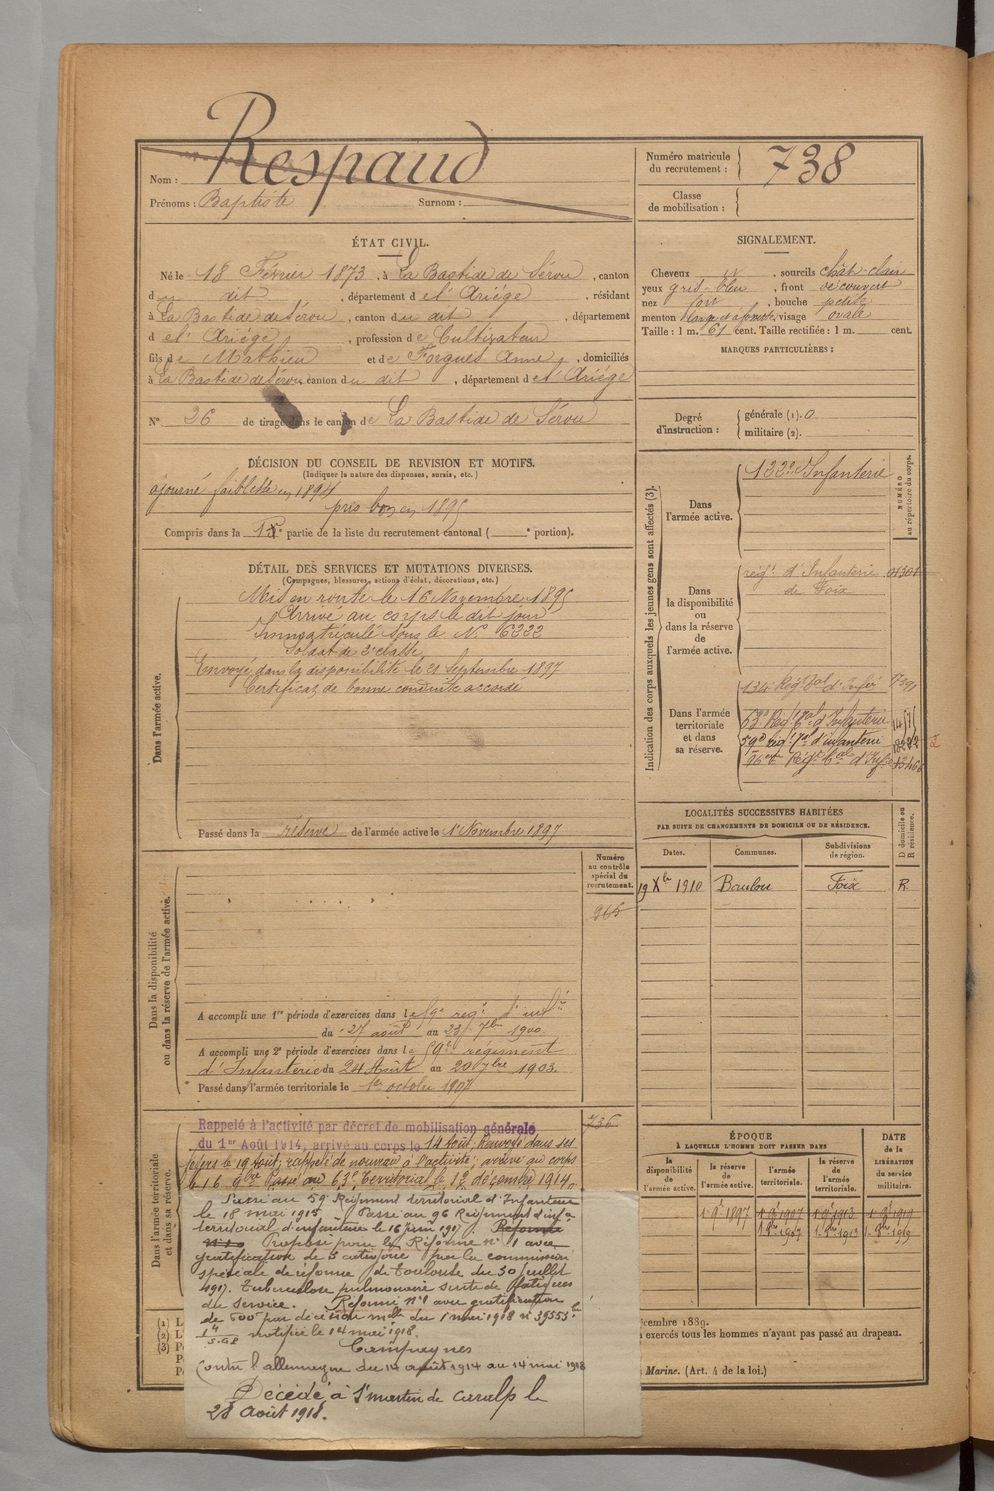 Nom : Respaud
Prénoms : Baptiste Surnom :
Numéro matricule du recrutement : 738
Classe de mobilisation :
ÉTAT CIVIL.
Né le 18 Février 1873, à La Bastide de Sérou, canton
du dit, département de l'Ariége, résidant
à La Bastide de Sérou, canton du dit, département
d e l'Ariége, profession de Cultivateur
fils de Mathieu et de Forgues Anne, domiciliés
à La Bastide de Sérou, canton du dit, département de l'Ariége
N° 26 de tirage dans le canton de La Bastide de Sérou
DÉCISION DU CONSEIL DE REVISION ET MOTIFS.
(Indiquer la nature des dispenses, sursis, etc.)
ajourné faiblesse en 1894
pris bon en 1895
Compris dans la partie de la liste du recrutement cantonal ( portion).
DÉTAIL DES SERVICES ET MUTATIONS DIVERSES.
(Campagnes, blessures, actions d'éclat, décorations, etc.)
Dans l'armée active.
Mis en route le 16 Novembre 1895
Arrivé au corps le dit jour
Immatriculé sous le N° 6222
Soldat de 2e classe
Envoyé dans la disponibilité le 21 Septembre 1897
Certificat de bonne conduite accordé
Passé dans la réserve de l'armée active le 1er Novembre 1897
Numéro au contrôle spécial du recrutement.
965
Dans la disponibilité ou dans la réserve de l'armée active.
A accompli une 1re période d'exercices dans le 59e régt d'infie
du 27 août au 23 7bre 1900
A accompli une 2e période d'exercices dans le 59e régiment
d'Infanterie du 24 Août au 20 7bre 1903.
Passé dans l'armée territoriale le 1er octobre 1907
Dans l'armée territoriale et dans sa réserve.
736
Rappelé à l'activité par décret de mobilisation générale
du 1er Août 1914, arrivé au corps le 14 août, Renvoyé dans ses
foyers le 19 Août, rappelé de nouveau à l'activité, arrivé au corps
le 16 9bre Passé au 63e territorial le 12 décembre 1914.
Passé au 59 Régiment territorial d'Infanterie
le 18 mai 1915 Passé au 96 Régiment d'infie
territorial d'infanterie le 16 juin 1917 Réformé
n° 1 Proposé pour la Réforme n° 1 avec
gratification de 5 catégorie par la commission
spéciale de réforme de Toulouse du 30 juillet
1917. Tuberculose pulmonaire suite de fatigues
du service. Réformé n° 1 avec gratification
de 600f par décision mlle du 1 mai 1918 n° 39555
notifiée le 14 mai 1918.
Campagnes
Contre l'allemagne du 14 août 1914 au 14 mai 1918
Décédé à St martin de caralp le
28 Août 1918.
SIGNALEMENT.
Cheveux, sourcils chât-clair
yeux gris-bleu, front découvert
nez fort, bouche petite
menton, visage ovale
Taille : 1 m. 61 cent. Taille rectifiée : 1 m. cent.
MARQUES PARTICULIÈRES :
Degré d'instruction : générale (1). 0
militaire (2).
Indication des corps auxquels les jeunes gens sont affectés (3).
NUMÉRO au répertoire du corps.
Dans l'armée active.
122e Infanterie
Dans la disponibilité ou dans la réserve de l'armée active.
régt d'Infanterie de Foix 01301
Dans l'armée territoriale et dans sa réserve.
134 Régt tal d'Infie
63e Régt tal d'Infanterie
59e régt tal d'infanterie
96eme Régt tal d'Infie
LOCALITÉS SUCCESSIVES HABITÉES
PAR SUITE DE CHANGEMENTS DE DOMICILE OU DE RÉSIDENCE.
Dates. Communes. Subdivisions de région. D domicile ou R résidence.
19 Xbre 1910 Baulou Foix R
ÉPOQUE
À LAQUELLE L'HOMME DOIT PASSER DANS
DATE de la LIBÉRATION du service militaire.
la disponibilité de l'armée active. la réserve de l'armée active. l'armée territoriale. la réserve de l'armée territoriale.
1 9e 1897 1 9e 1907 1 9e 1913 1 9e 1919
1 8bre 1907 1 8bre 1913 1 8bre 1919
(1) L
(2) L'I
(3) P
écembre 1889.
exercés tous les hommes n'ayant pas passé au drapeau.
Marine. (Art. 4 de la loi.)